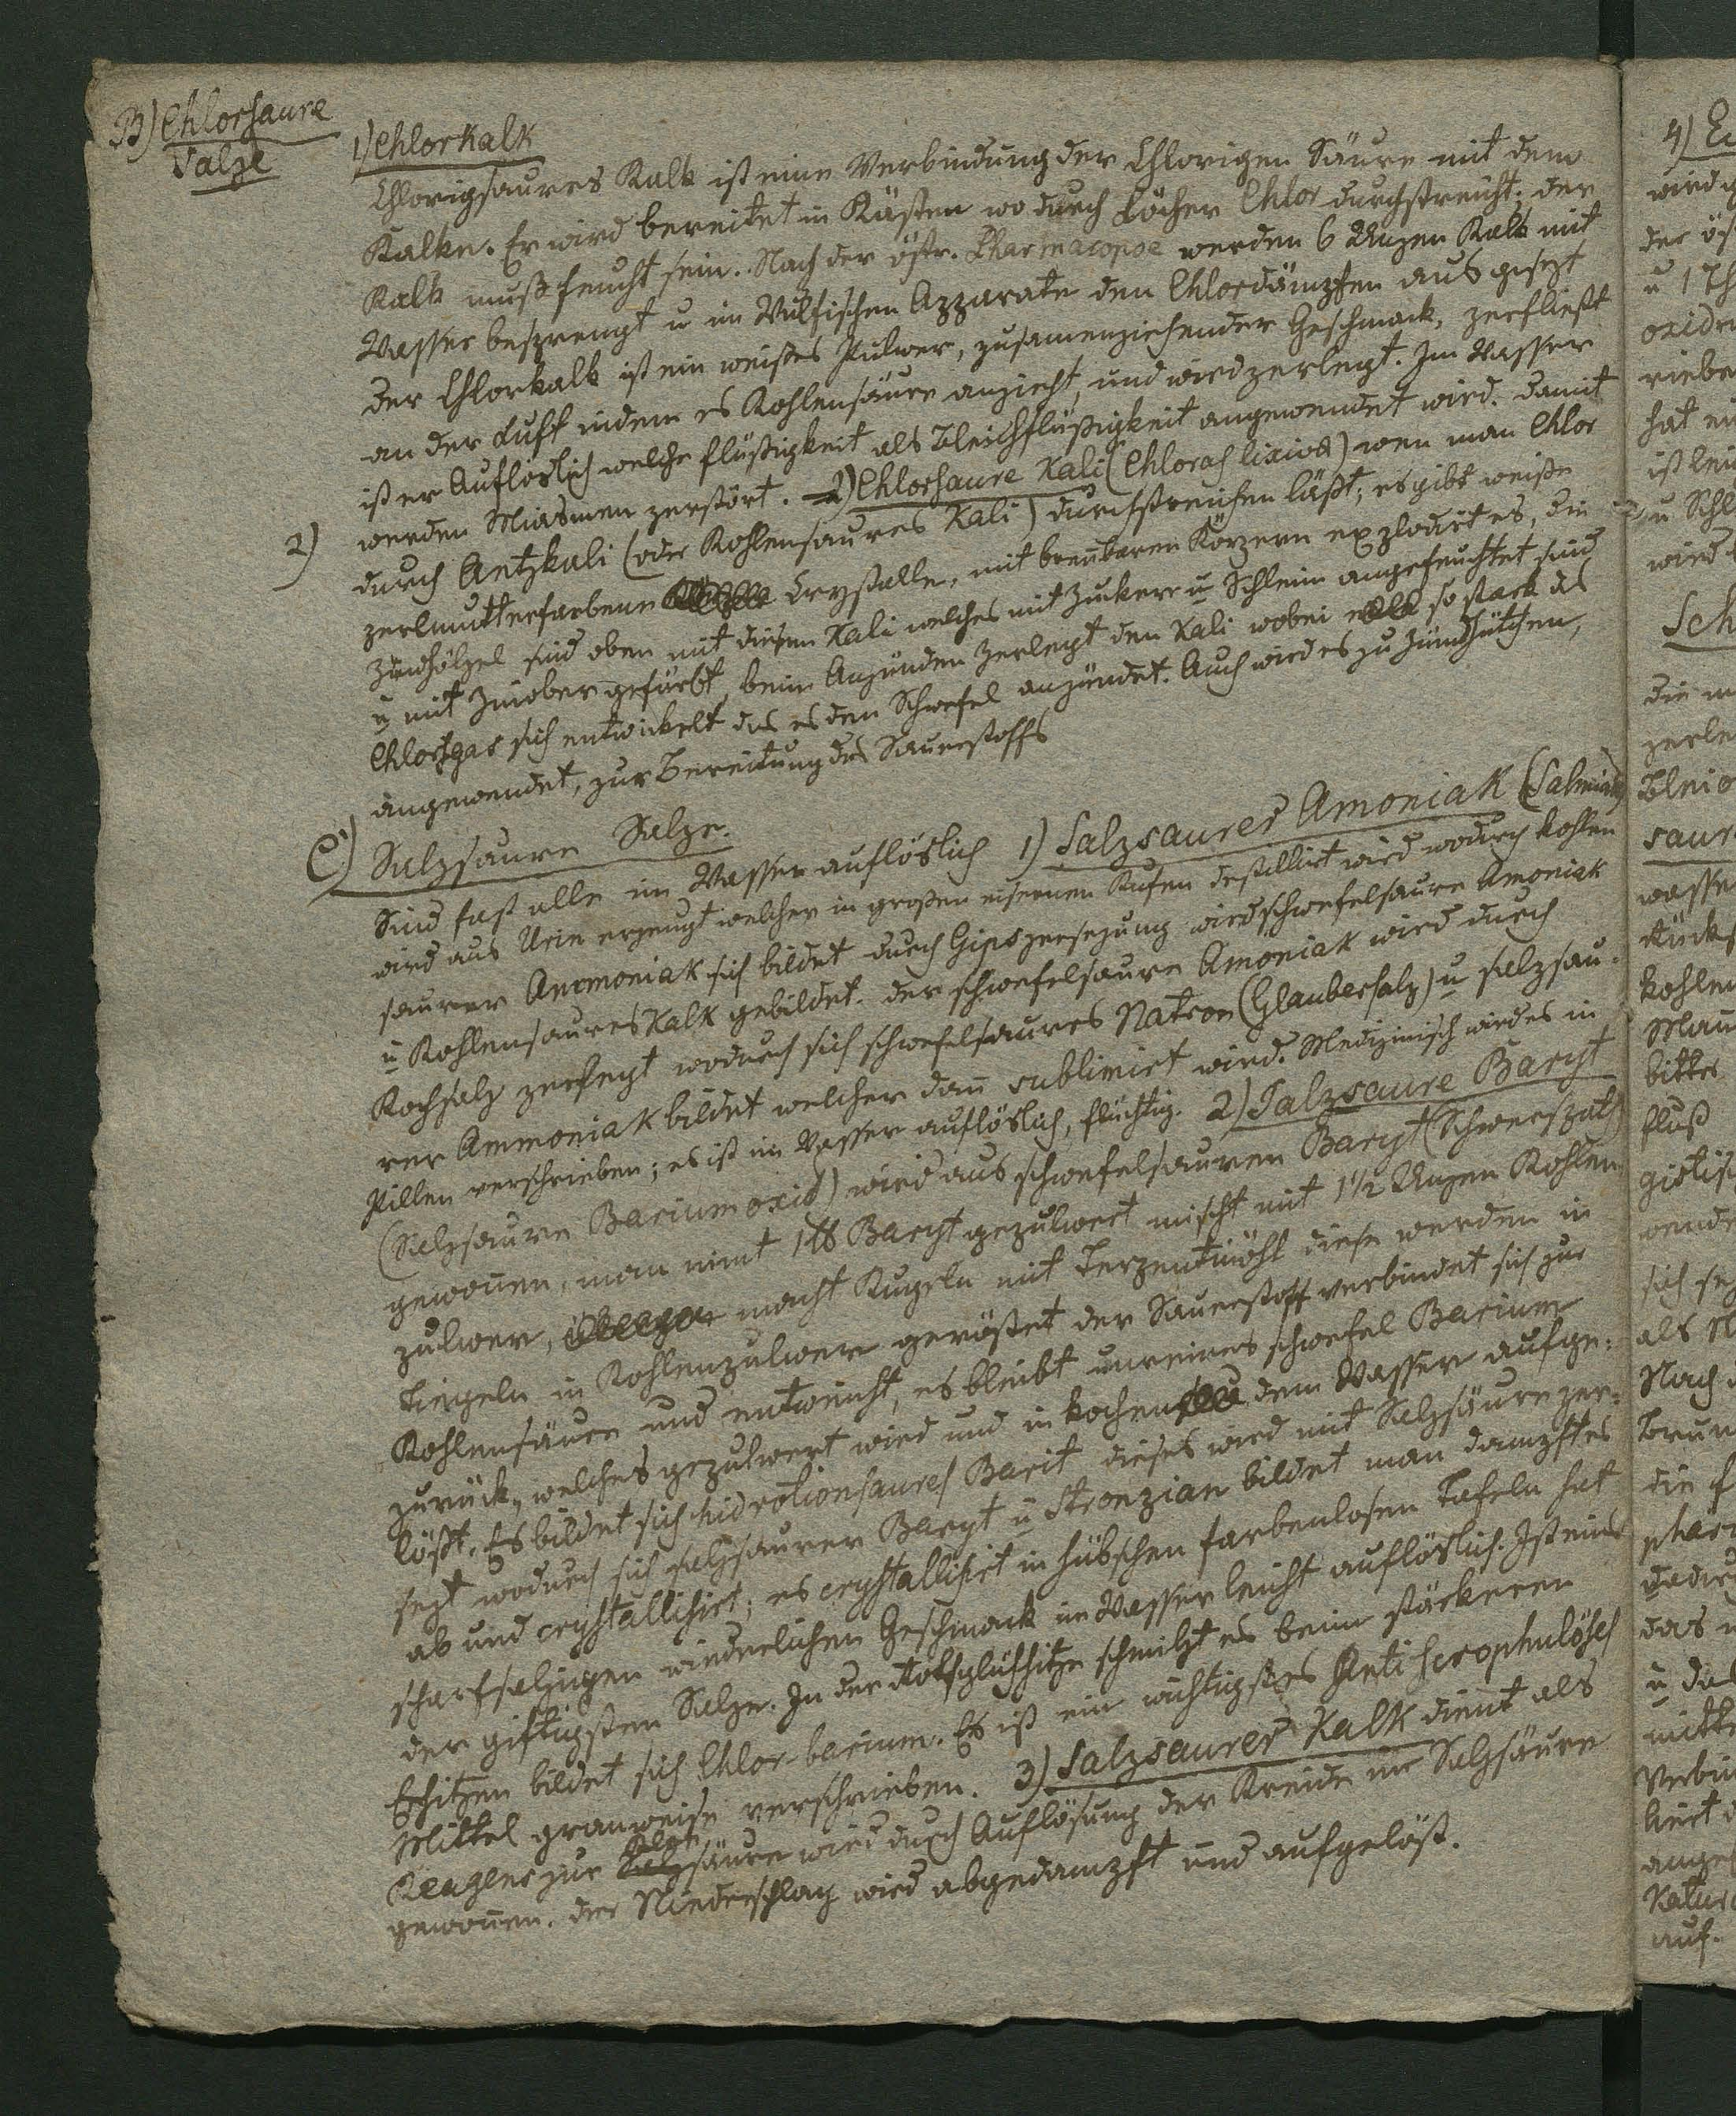 B) Chlorsaure
Salze
1) Chlorkalk
Chlorigsaures Kalk ist eine Verbindung der Chlorigen Säure mit dem
Kalke. Er wird bereitet in Kästen wo durch Löcher Chlor durchstreicht; der
Kalk muß feucht sein. Nach der östr. Pharmacopoe werden 6 Unzen Kalk mit
Wasser besprengt u im Wulfischen Apparate den Chlordämpfen aus gesezt
der Chlorkalk ist ein weißes Pulver, zusamenziehender Geschmack, zerfließt
an der Luft indem es Kohlensäure anzieht, und wird zerlegt. Im Wasser
ist er Auflöslich welche Flüßigkeit als Bleichflüßigkeit angewendet wird. damit
werden Miasmen zerstört. 2) Chlorsaure Kali (Chloras lixivae) wen man Chlor
2)
durch Aetzkali (oder Kohlensaures Kali) durchstreichen läßt; es gibt weiße
perlmutterfarbene Crystalle, mit brenbaren Körpern explodirt es, die
Zündhölzel sind oben mit diesem Kali welches mit Zucker u Schleim angefeuchtet sind
u mit Zinober gefärbt, beim Anzünden zerlegt den Kali wobei so stark das
Chlorgas sich entwickelt das es den Schwefel anzündet. Auch wird es zu Zündhütchen,
angewendet, zur Bereitung des Sauerstoffs
C) Salzsaure Salze.
Sind fast alle im Wasser auflöslich 1) Salzsaures Amoniak (Salmiak)
wird aus Urin erzeugt welcher in großen eisernen Kufen destillirt wird wodurch kohlen
saurer Ammoniak sich bildet durch Gipszersezung wird schwefelsaure Amoniak
u Kohlensaures Kalk gebildet. der schwefelsaure Amoniak wird durch
Kochsalz zersezt wodurch sich schwefelsaures Natron (Glaubersalz) u salzsau-
rer Ammoniak bildet welcher dan sublimirt wird. Medizinisch wird es in
Pillen verschrieben; es ist im Wasser auflöslich, flüchtig. 2) Salzsaure Baryt
(Salzsaure Bariumoxid) wird aus schwefelsauren Baryt (Schwerspath)
gewonen, man nimt 1 ℔ Baryt gepulvert mischt mit 1 1/2 Unzen Kohlen
pulver, macht Kugeln mit Terzentinöhl diese werden in
Tiegeln in Kohlenpulver geröstet der Sauerstoff verbindet sich zur
Kohlensäure und entweicht, es bleibt unreines schwefel Barium
zurück, welches gepulvert wird und in kochen dem Wasser aufge-
löst. Es bildet sich hidrotionsaures Barit dieses wird mit Salzsäure zer-
sezt wodurch sich salzsaurer Baryt u Stronzian bildet man dampft es
ab und crystallisirt; es crystallisirt in hübschen farbenlosen Tafeln hat
scharfsalzigen wiederlichen Geschmack im Wasser leicht auflöslich. Ist eines
der giftigsten Salze. In der Rothglühhitze schmilzt es beim stärkeren
Erhitzen bildet sich Chlor-barium. Es ist ein wichtigstes Antiscrophulöses
Mittel granweise verschrieben. 3) Salzsaurer Kalk dient als
Reagens zur Salzsäure wird durch Auflösung der Kreide in Salzsäure
gewonen. der Niederschlag wird abgedampft und aufgelöst.